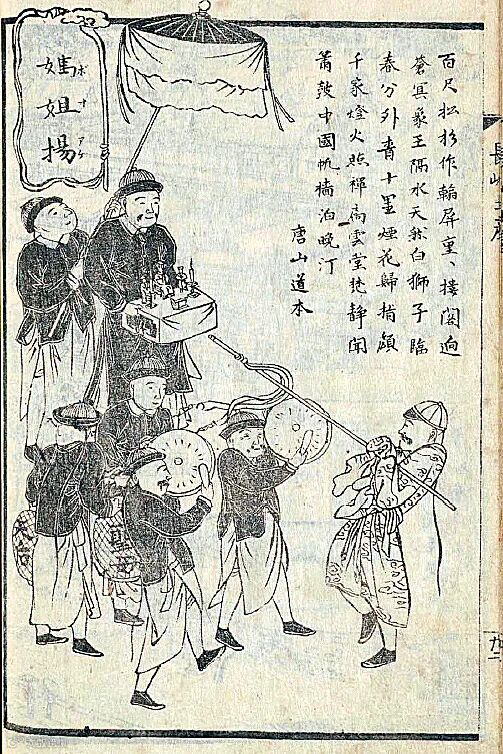 媽姐揚
ボサアゲ
百尺松杉作翰屏重〻樓閣逈
蒼冥象王隔水天然白獅子臨
春分外青十里煙花歸指顧
千家燈火照禪扃雲堂㝎靜聞
簫鼓中國帆檣泊晚汀
唐山道本